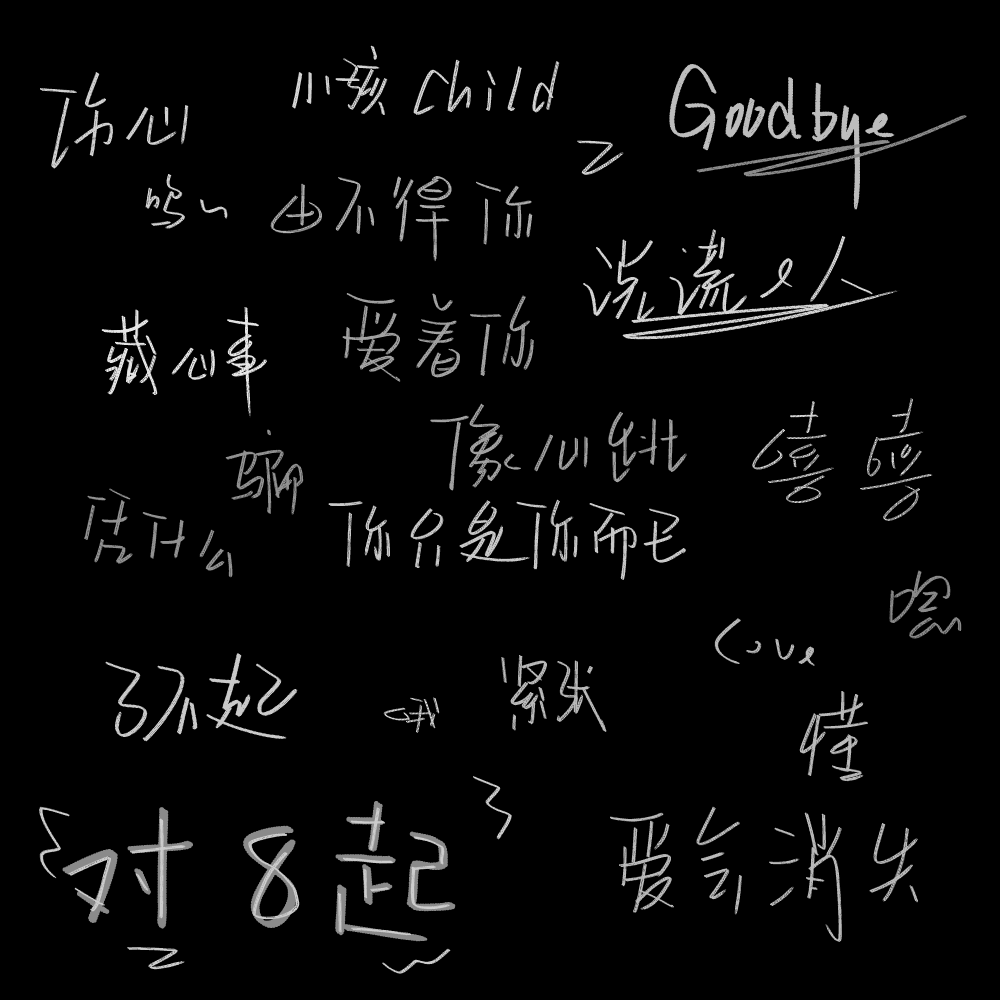 伤心
小孩 Child
Goodbye
呜~
由不得你
说谎的人
藏心事
爱着你
像心跳
嘻嘻
骗
凭什么
你只是你而已
嗯
Love
了不起
哦
紧张
懂
对8起
爱会消失